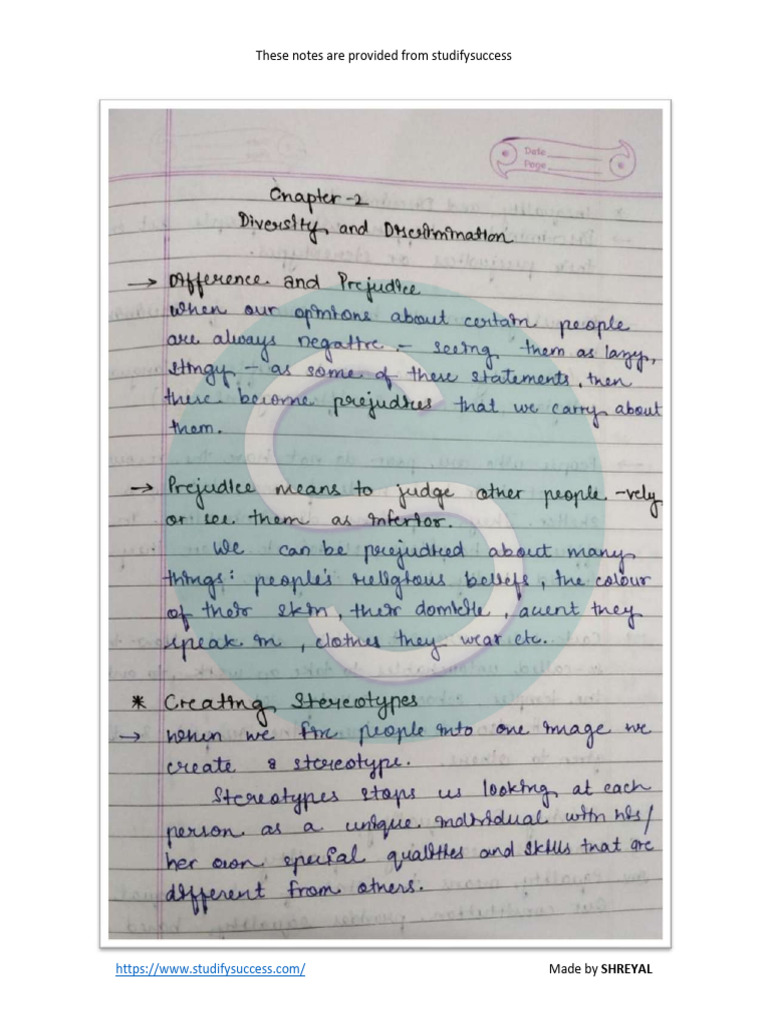 These notes are provided from studifysuccess
Date
Page
Chapter -2
Diversity and Discrimination
→ Difference and Prejudice
When our opinions about certain people
are always negative – seeing them as lazy,
stingy – as some of these statements, then
these become prejudices that we carry about
them.
→ Prejudice means to judge other people -vely
or see them as inferior.
We can be prejudiced about many
things: people's religious beliefs, the colour
of their skin, their domicile, accent they
speak in, clothes they wear etc.
* Creating Stereotypes
→ When we fix people into one image we
create a stereotype.
Stereotypes stops us looking at each
person as a unique individual with his/
her own special qualities and skills that are
different from others.
https://www.studifysuccess.com/
Made by SHREYAL